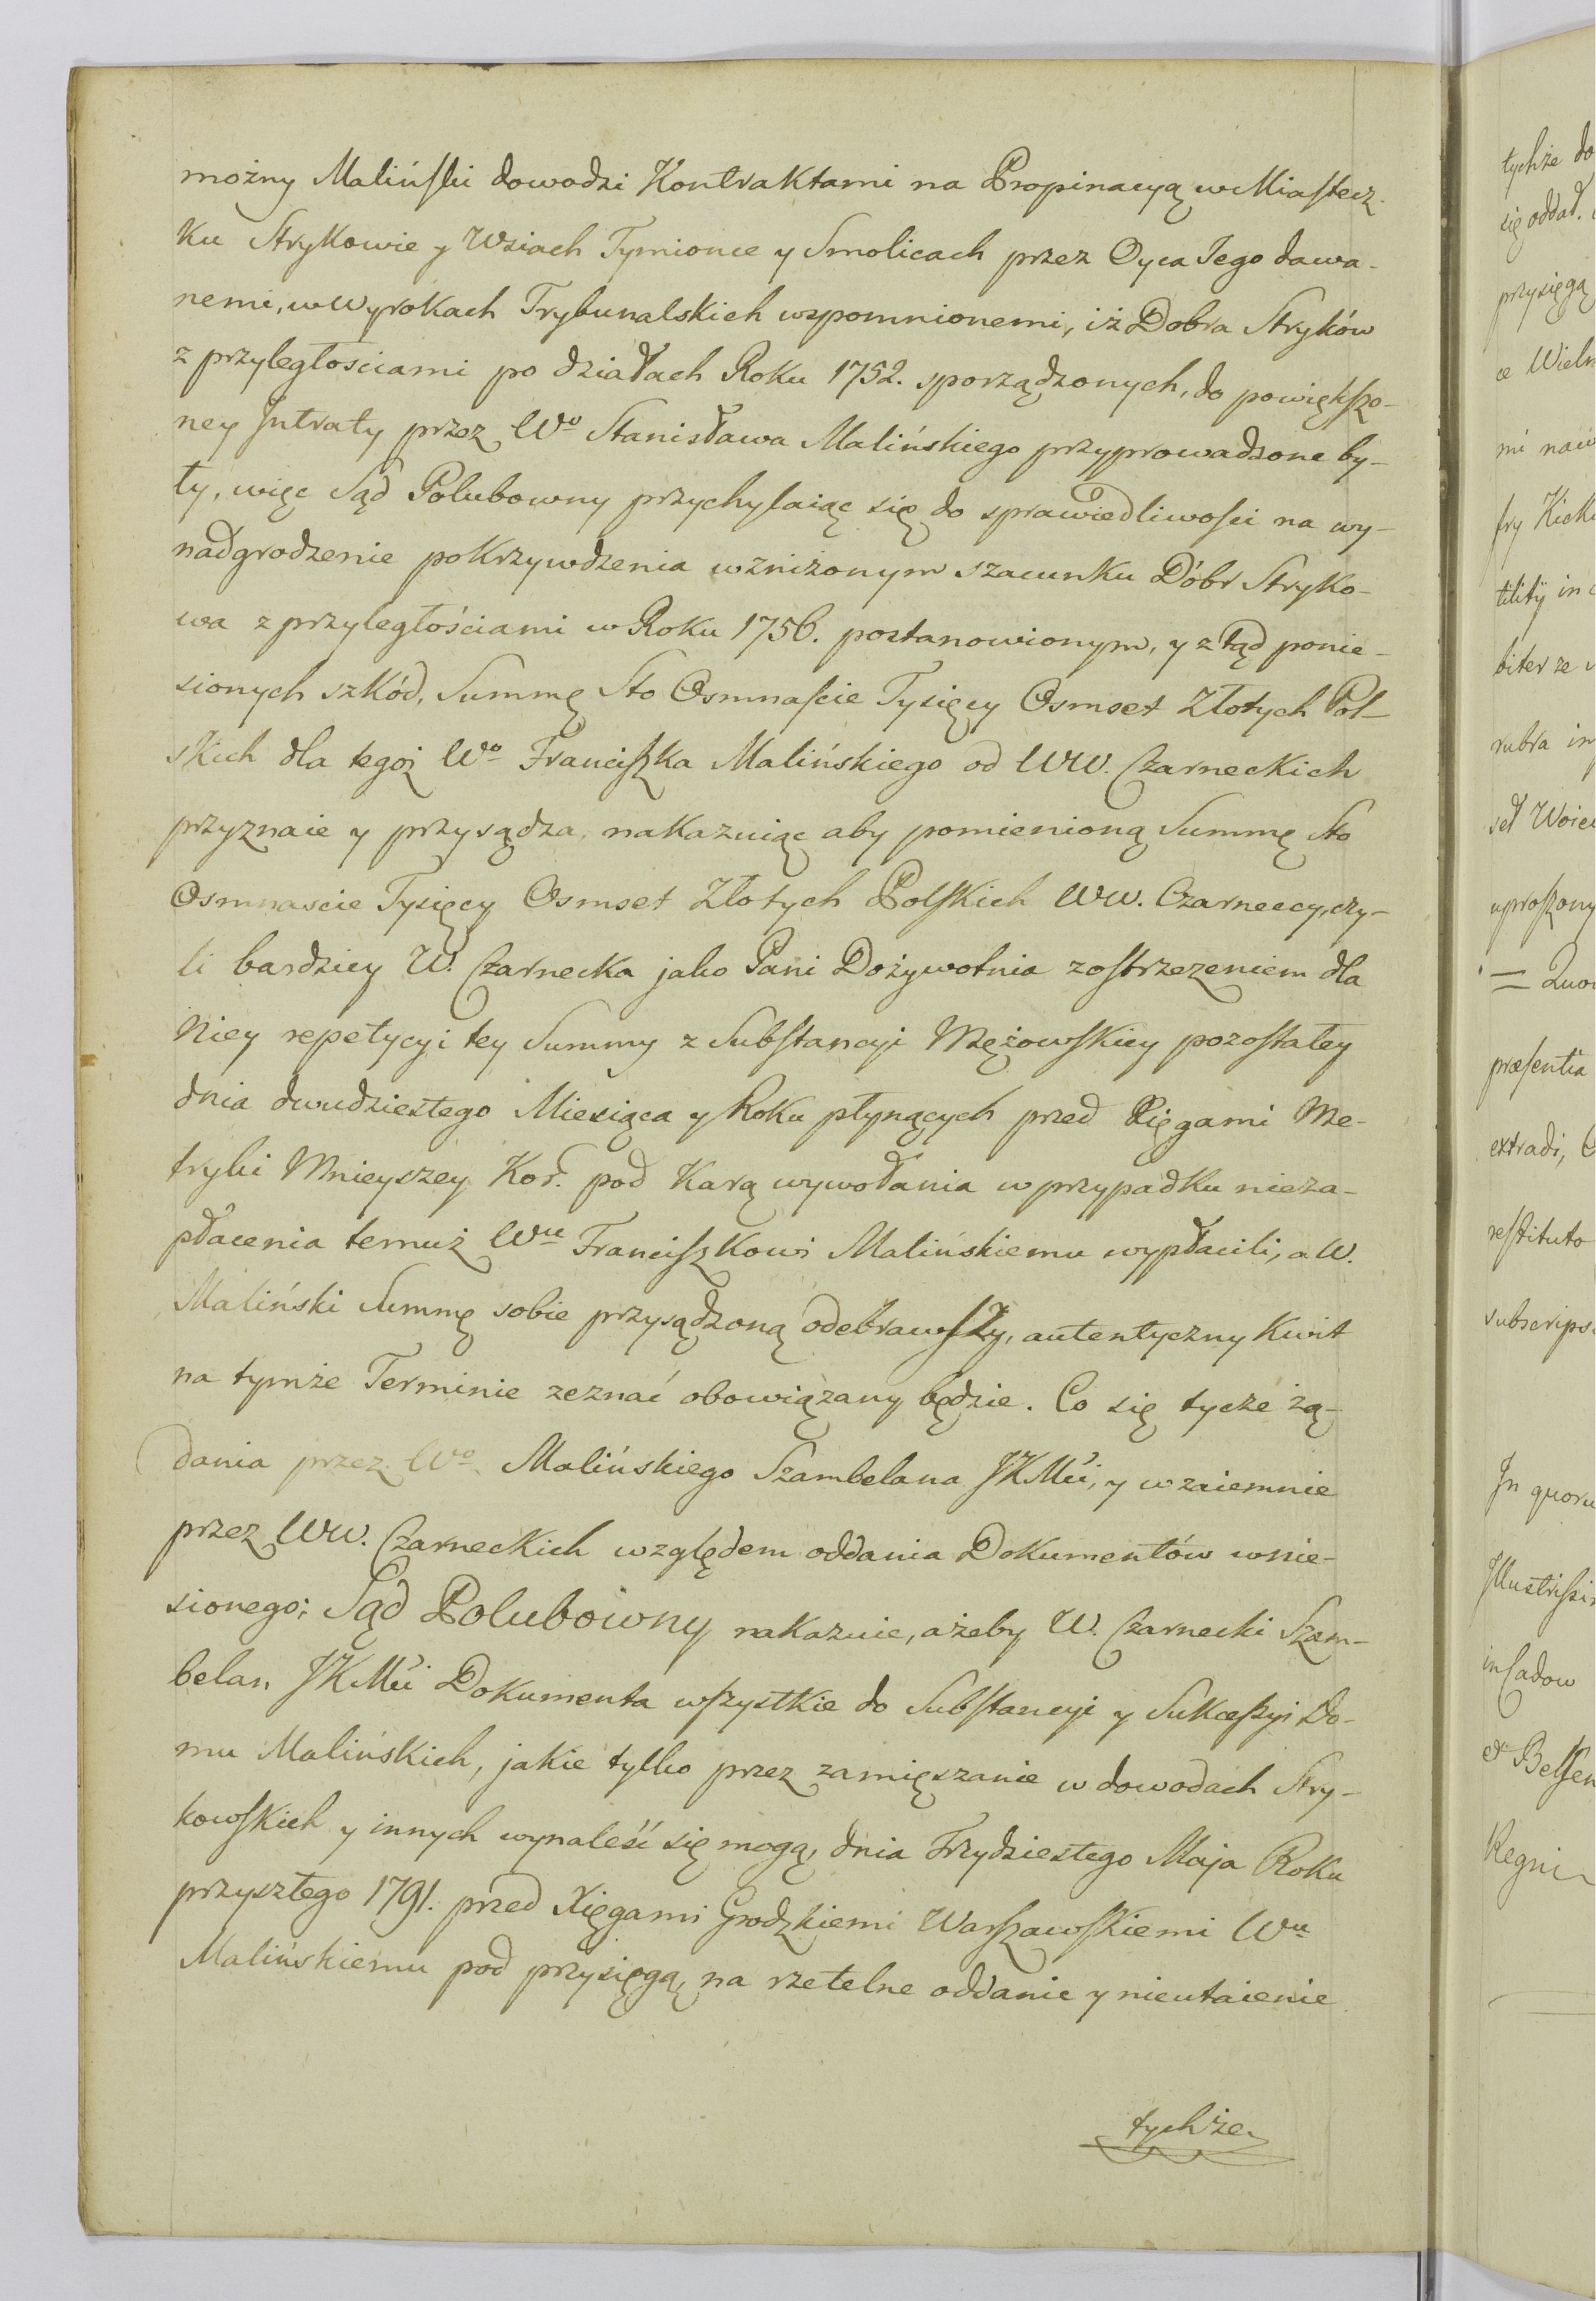 możny Maliński dowodzi Kontraktami na Propinacyą w Miastecz-
ku Strykowie y Wsiach Tymionce y Smolicach przez Oyca Jego dawa-
nemi, w Wyrokach Trybunalskich wspomnionemi, iż Dobra Stryków
z przyległosciami po działach Roku 1752. sporządzonych, do powiększo-
ney Intraty przez Wo Stanisława Malińskiego przyprowadzone by-
ły, więc Sąd Polubowny przychylaiąc się do sprawiedliwości na wy-
nadgrodzenie pokrzywdzenia w zniżonym szacunku Dóbr Stryko-
wa z przyległościami w Roku 1756. postanowionym, y ztąd ponie-
sionych szkód, Summę Sto Osmnaście Tysięcy Osmset Złotych Pol-
skich dla tegoż Wo Franciszka Malińskiego od WW. Czarneckich
przyznaie y przysądza, nakazuiąc aby pomienioną Summę Sto
Osmnascie Tysięcy Osmset Złotych Polskich WW. Czarneccy, czy-
li bardziey W. Czarnecka jako Pani Dożywotnia zostrzezeniem dla
Niey repetycyi tey Summy z Substancyi Mężowskiey pozostałey
dnia dwudziestego Miesiąca y Roku płynących przed Xięgami Me-
tryki Mnieyszey Kor. pod Karą wywołania w przypadku nieza-
płacenia temuż Wu Franciszkowi Malińskiemu wypłacili, a W.
Maliński Summę sobie przysądzoną odebrawszy, autentyczny Kwit
na tymże Terminie zeznać obowiązany będzie. Co się tycze żą-
dania przez Wo Malińskiego Szambelana JKMci, y wzaiemnie
przez WW. Czarneckich względem oddania Dokumentów wnie-
sionego; Sąd Polubowny nakazuie, ażeby W. Czarnecki Szam-
belan JKMci Dokumenta wszystkie do Substancyi y Sukcessyi Do-
mu Malińskich, jakie tylko przez zamięszanie w dowodach Stry-
kowskich y innych wynaleść się mogą, dnia Trzydziestego Maja Roku
przyszłego 1791. przed Xięgami Grodzkiemi Warszawskiemi Wu
Malińskiemu pod przysięgą, na rzetelne oddanie y nieutaienie
tychże
tychże do
się oddał.
przysięgą
mi
biter ze
rubra in
uproszony
= Quo
præsentia
extradi,
restituto
subscrips
In quoru
Illustrissi
Regni